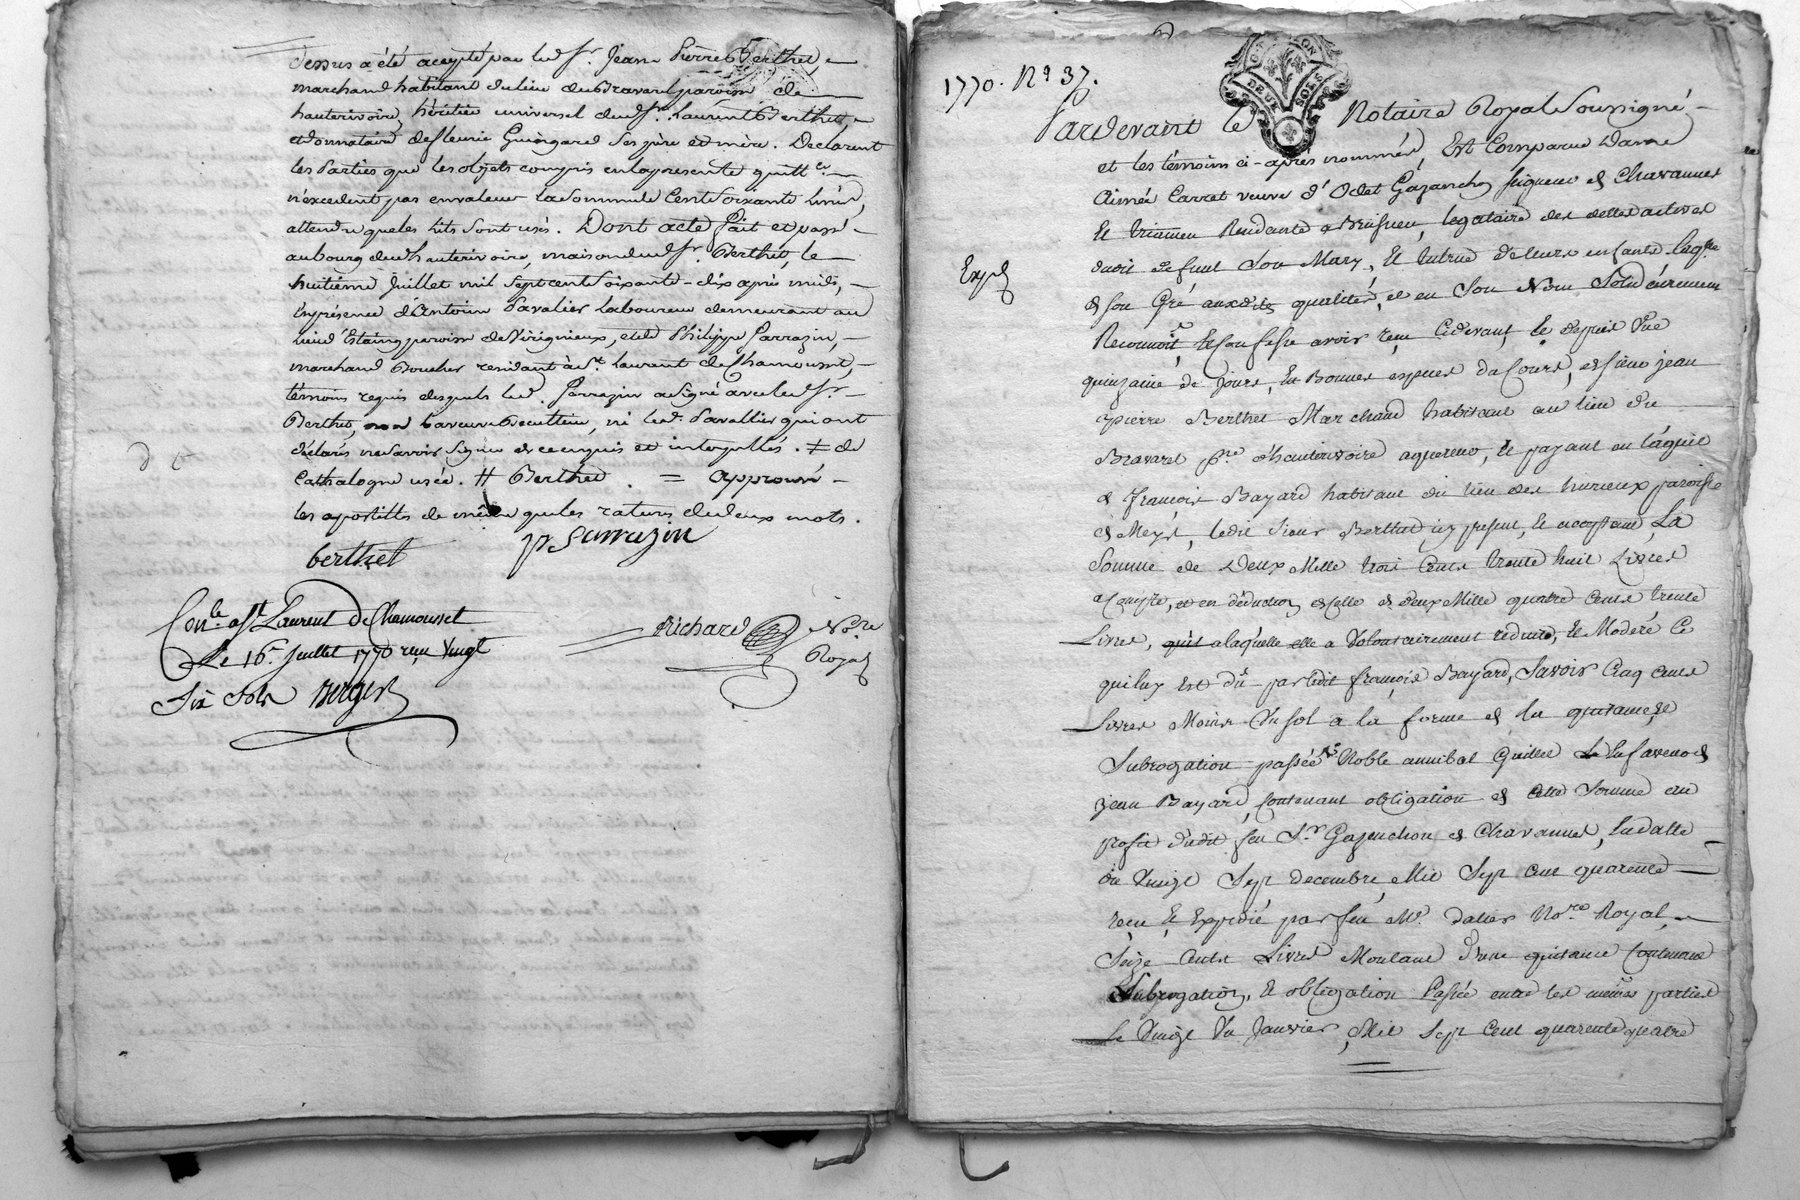 dessus a été accepté par led. Sr. Jean Pierre Berthet,
marchand habitant du lieu du Bravaret paroisse de
hauterivoire, héritier universel dud. Sr. Laurent Berthet,
et donnataire de fleurie Guingard ses père et mère. Declarent
les Parties que les objets compris en la presente quittce.
n'excedent pas en valeur la somme de Cent soixante livres,
attendu que les lits sont usés. Dont acte fait et passé
au bourg dud. hauterivoire, maison dud. Sr. Berthet, le
huitième Juillet mil sept cent soixante-dix après midi,
en présence d'Antoine Pavalier Laboureur demeurant au
lieu d'Estaing paroisse de Virigneux, et de Philippe Sarrazin,
marchand Boucher residant à St. Laurent de Chamousset,
témoins requis desquels led. Sarrazin a signé avec led. Sr.
Berthet, non la veuve ni led. Pavallier qui ont
déclarés ne savoir signer de ce enquis et interpellés. ≠ de
Cathalogne usée. # Berthet. = approuvé
les apostilles de même que les ratures de deux mots.
berthet p Sarrazin
Conlé. a St Laurent de Chamousset
Le 16e Juillet 1770 reçu Vingt
Six Sols Berger
Richard Nore
Royal
1770. No 37.
DEUX SOLS
Pardevant le Notaire Royal Soussigné
et les témoins ci-après nommés, Est Comparue Dame
Aimée Carret veuve d'Odet Gazanchon seigneur de Chavannes
Et Residante a Brusieu, legataire des dettes actives
dudit defunt Son Mary, Et tutrice de leurs enfants, laqlle
Expé
de son Gré auxdites qualités, et en Son Nom Solidairement
Reconnoit, et Confesse avoir reçu Cidevant, et depuis Une
quinzaine de jours, En Bonnes especes de Cours, de sieur jean
pierre Berthet Marchand habitant au lieu du
Bravaret psse. d'hauterivoire aquereur, et payant en l'aquit
de françois Bayard habitant du lieu des hurieux paroisse
de Meys, ledit sieur Berthet icy present, et acceptant, La
Somme de Deux Mille trois Cents trente huit Livres
a Compte, et en déduction de Celle de deux Mille quatre Cents trente
Livres, a laquelle elle a Volontairement reduit, et Modéré Ce
qui luy Est dû par ledit françois Bayard, Savoir Cinq Cents
Livres Moins Un sol a la forme de la quitance, et
Subrogation passée par Noble annibal Guillet En faveur de
jean Bayard, Contenant obligation de Cette Somme au
profit dudit feu Sr. Gazanchon de Chavannes, En datte
du Vingt Sept decembre Mil Sept Cent quarente
reçu et Expedié par feu Me. Nore. Royal,
Seize Cents Livres Moulant d'une quitance Contenant
Subrogation, et obligation Passée entre les mêmes parties
Le Vingt Un Janvier, Mil Sept Cent quarente quatre